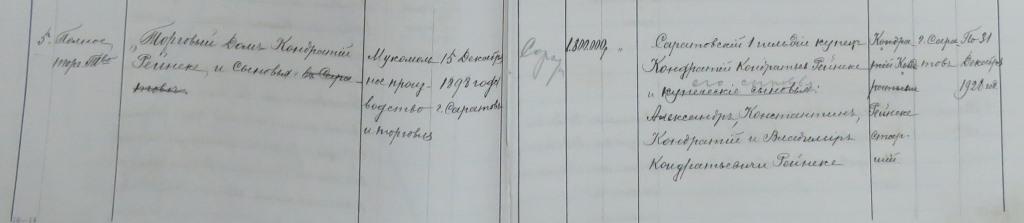 5. Полное
торг. Т-во
„Торговый Домъ Кондратій
Рейнеке и Сыновья въ Сара-
товѣ
Мукомоль-
ное произ-
водство
и торговля
15 Декабря
1893 года
г. Саратовъ
Сарат
1.800.000 р "
Саратовскій 1 гильдіи купецъ
Кондратій Кондратьев Рейнеке
его сыновья
и купеческіе сыновья:
Александръ, Константинъ,
Кондратій и Владиміръ
Кондратьевичи Рейнеке
Кондра-
тій Кон-
дратьев
Рейнеке
стар-
шій
г. Сара-
товъ
По 31
Декабря
1928 год